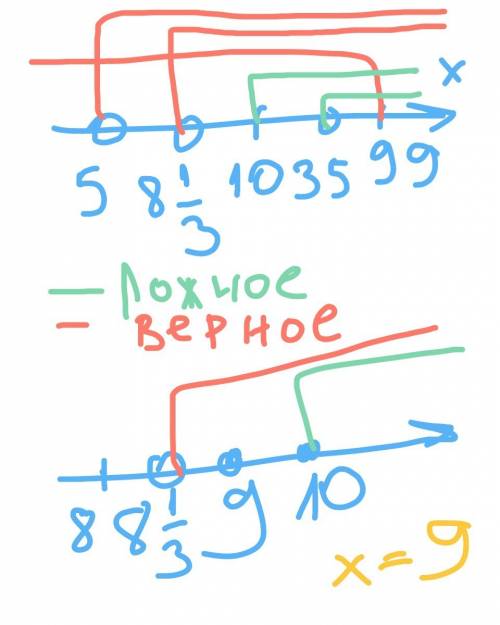 x
5 8 1/3 10 35 99
— Ложное
— верное
8 8 1/3 9 10
x=9